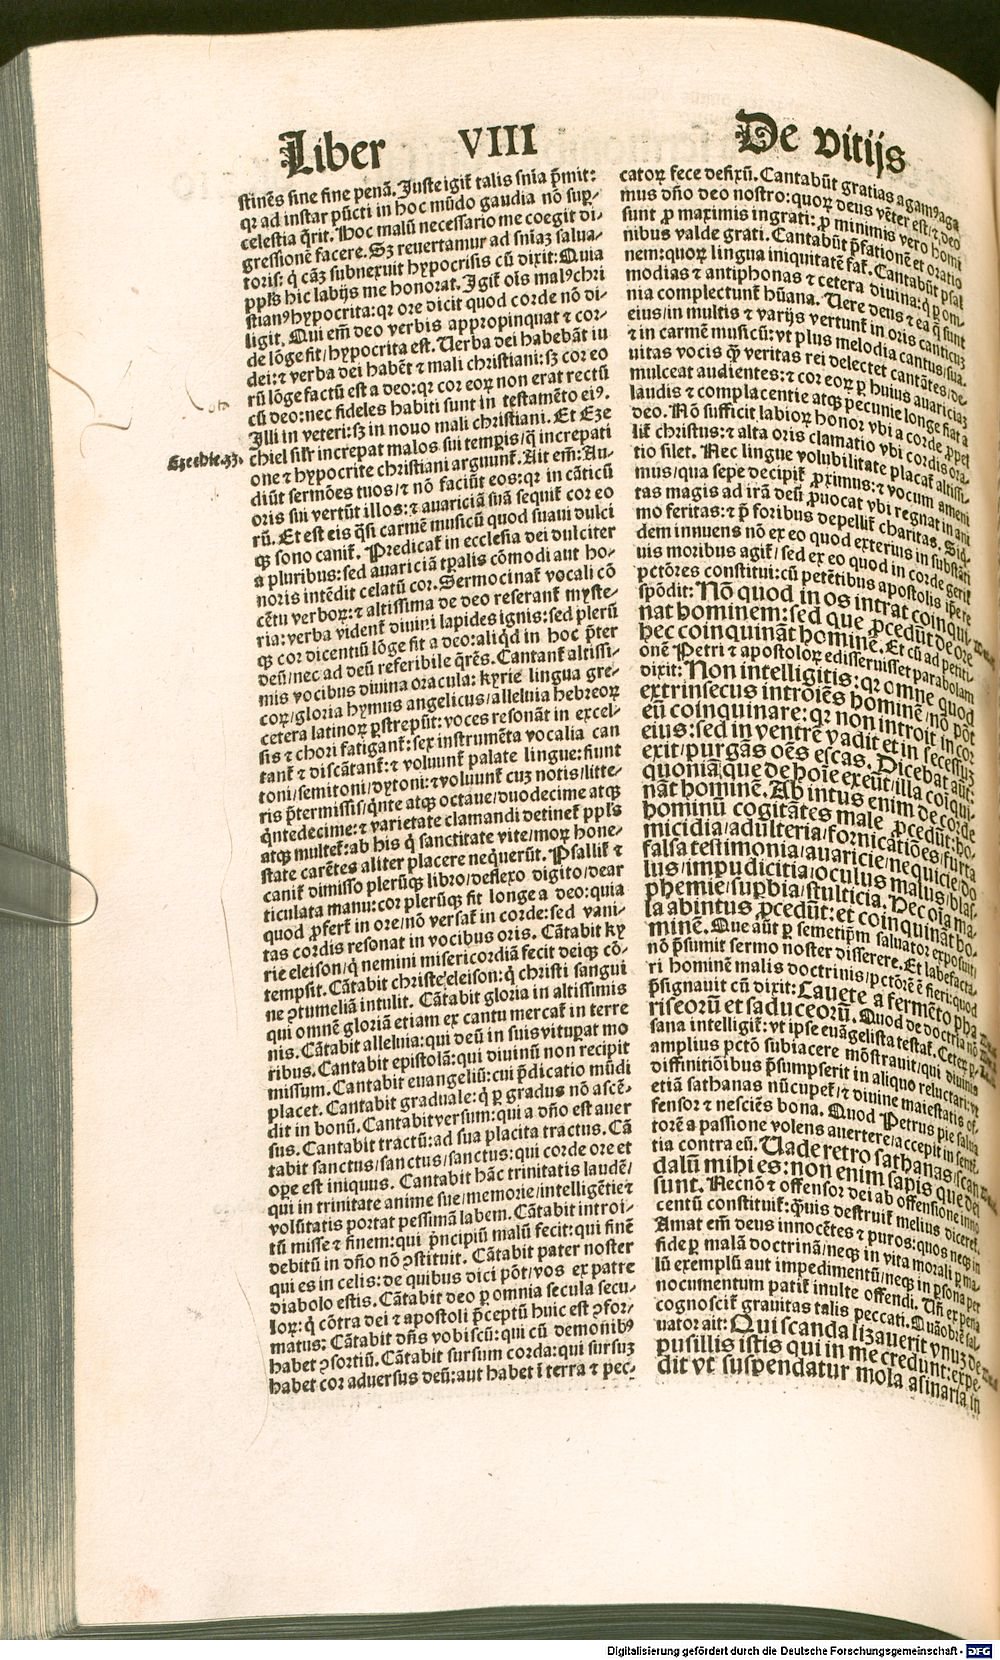 Liber VIII De vitijs
stinẽs sine fine penã. Iuste igit̃ talis sñia p̃mit:
qꝛ ad instar pũcti in hoc mũdo gaudia nõ suꝑ-
celestia q̃rit. Hoc malũ necessario me coegit di-
gressionẽ facere. Sꝫ reuertamur ad sñiaꝫ salua-
toris: q̇ cãꝫ subnexuit hypocrisis cũ dixit: Quia
ppl̃s hic labijs me honorat. Igit̃ ois malꝰ chri
stianꝰ hypocrita: qꝛ ore dicit quod corde nõ di-
ligit. Qui em̃ deo verbis appropinquat ⁊ cor-
de lõge fit/hypocrita est. Uerba dei habebãt iu
dei: ⁊ verba dei habẽt ⁊ mali christiani: sꝫ cor eo
rũ lõge factũ est a deo: qꝛ cor eoꝝ non erat rectũ
cũ deo: nec fideles habiti sunt in testamẽto eiꝰ.
Illi in veteri: sꝫ in nouo mali christiani. Et Eze
Ezechie.33. chiel sil̃r increpat malos sui temꝑis/q̃ increpati
one ⁊ hypocrite christiani arguunt̃. Ait em̃: Au-
diũt sermões tuos/⁊ nõ faciũt eos: qꝛ in cãticũ
oris sui vertũt illos: ⁊ auariciã suã sequit̃ cor eo
rũ. Et est eis q̃si carmẽ musicũ quod suaui dulci
qꝫ sono canit̃. Predicat̃ in ecclesia dei dulciter
a pluribus: sed auariciã tꝑalis cõmodi aut ho-
noris intẽdit celatũ cor. Sermocinat̃ vocali cõ
cẽtu verboꝝ: ⁊ altissima de deo reserant̃ myste-
ria: verba vident̃ diuini lapides ignis: sed plerũ
qꝫ cor dicentiũ lõge fit a deo: aliq̇d in hoc p̃ter
deũ/nec ad deũ referibile q̃rẽs. Cantant̃ altissi-
mis vocibus diuina oracula: kyrie lingua gre-
coꝝ/gloria hymus angelicus/alleluia hebreoꝝ
cetera latinoꝝ ꝑstrepũt: voces resonãt in excel-
sis ⁊ chori fatigant̃: sex instrumẽta vocalia can
tant̃ ⁊ discãtant̃: ⁊ voluunt̃ palate lingue: fiunt
toni/semitoni/dytoni: ⁊ voluunt̃ cuꝫ notis/litte-
ris p̃termissis/q̃nte atqꝫ octaue/duodecime atqꝫ
q̃ntedecime: ⁊ varietate clamandi detinet̃ ppl̃s
atqꝫ multet̃: ab his q̇ sanctitate vite/moꝝ hone-
state carẽtes aliter placere neq̇uerũt. Psallit̃ ⁊
canit̃ dimisso plerũqꝫ libro/deflexo digito/dear
ticulata manu: cor plerũqꝫ fit longe a deo: quia
quod ꝓfert̃ in ore/nõ versat̃ in corde: sed vani-
tas cordis resonat in vocibus oris. Cãtabit ky
rie eleison/q̇ nemini misericordiã fecit deiqꝫ cõ-
tempsit. Cãtabit christe eleison: q̇ christi sangui
ne ꝯtumeliã intulit. Cãtabit gloria in altissimis
qui omnẽ gloriã etiam ex cantu mercat̃ in terre
nis. Cãtabit alleluia: qui deũ in suis vituꝑat mo
ribus. Cantabit epistolã: qui diuinũ non recipit
missum. Cantabit euangeliũ: cui p̃dicatio mũdi
placet. Cantabit graduale: q̇ ꝑ gradus nõ ascẽ-
dit in bonũ. Cantabit versum: qui a dño est auer
sus. Cantabit tractũ: ad sua placita tractus. Cã
tabit sanctus/sanctus/sanctus: qui corde ore et
oꝑe est iniquus. Cantabit hãc trinitatis laudẽ/
qui in trinitate anime sue/memorie/intelligẽtie ⁊
volũtatis portat pessimã labem. Cãtabit introi-
tũ misse ⁊ finem: qui p̃ncipiũ malũ fecit: qui finẽ
debitũ in dño nõ ꝯstituit. Cãtabit pater noster
qui es in celis: de quibus dici põt/vos ex patre
diabolo estis. Cãtabit deo ꝑ omnia secula secu-
loꝝ: q̇ cõtra dei ⁊ apostoli p̃ceptũ huic est ꝯfor-
matus: Cãtabit dñs vobiscũ: qui cũ demonibꝰ
habet ꝯsortiũ. Cãtabit sursum corda: qui sursuꝫ
habet cor aduersus deũ: aut habet ĩ terra ⁊ pec-
catoꝝ fece defixũ. Cantabũt gratias agamꝰ aga
mus dño deo nostro: quoꝝ deus vẽter est/⁊ deo
sunt ꝓ maximis ingrati: ꝓ minimis vero homi
nibus valde grati. Cantabũt p̃fationẽ et oratio
nem: quoꝝ lingua iniquitatẽ fat̃. Cantabũt psal
modias ⁊ antiphonas ⁊ cetera diuina: q̇ ꝑ om-
nia complectunt̃ hũana. Uere deus ⁊ ea q̃ sunt
eius/in multis ⁊ varijs vertunt̃ in oris canticuꝫ
⁊ in carmẽ musicũ: vt plus melodia cantus/sua-
uitas vocis q̃ꝫ veritas rei delectet cantãtes/de-
mulceat audientes: ⁊ cor eoꝝ ꝑ huius auariciaꝫ
laudis ⁊ complacentie atqꝫ pecunie longe fiat a
deo. Nõ sufficit labioꝝ honor vbi a corde ꝓpel
lit̃ christus: ⁊ alta oris clamatio vbi cordis ora-
tio silet. Nec lingue volubilitate placat̃ altissi-
mus/qua sepe decipit̃ ꝓximus: ⁊ vocum ameni
tas magis ad irã deũ ꝓuocat vbi regnat in ani
mo feritas: ⁊ p̃ foribus depellit̃ charitas. Siq̇
dem innuens nõ ex eo quod exterius in substãti
uis moribus agit̃/sed ex eo quod in corde gerit̃
pctõres constitui: cũ petẽtibus apostolis ip̃e re
spõdit: Nõ quod in os intrat coinqui
nat hominem: sed que ꝓcedũt de ore
hec coinquinãt hominẽ. Et cũ ad petiti-
onẽ Petri ⁊ apostoloꝝ edisseruisset parabolam
dixit: Non intelligitis: qꝛ omne quod
extrinsecus introiẽs hominẽ/nõ põt
eũ coinquinare: qꝛ non introit in cor
eius: sed in ventrẽ vadit et in secessuꝫ
exit/purgãs oẽs escas. Dicebat aũt:
quoniã que de hoie exeũt/illa coiqui-
nãt hominẽ. Ab intus enim de corde
hominũ cogitãtes male ꝓcedũt: ho-
micidia/adulteria/fornicatiões/furta
falsa testimonia/auaricie/nequicie/do
lus/impudicitia/oculus malus/blas-
phemie/suꝑbia/stulticia. Hec oĩa ma-
la abintus ꝓcedũt: et coinquinãt ho-
minẽ. Que aũt ꝑ semetip̃m saluator exposuit/
nõ p̃sumit sermo noster disserere. Et labefacta-
ri hominẽ malis doctrinis/pctõrẽ ẽ fieri: quod
p̃signauit cũ dixit: Cauete a fermẽto pha
riseorũ et saduceorũ. Quod de doctria nõ
sana intelligit̃: vt ipse euãgelista testat̃. Ceteꝝ ꝑ-
amplius pctõ subiacere mõstrauit/qui diuinis
diffinitiõibus p̃sumpserit in aliquo reluctari: vt
etiã sathanas nũcupet̃/⁊ diuine maiestatis of-
fensor ⁊ nesciẽs bona. Quod Petrus pie salua
torẽ a passione volens auertere/accepit in senten̄
tia contra eũ. Uade retro sathanas/scan
dalũ mihi es: non enim sapis que dei
sunt. Necnõ ⁊ offensor dei ab offensione inno
centũ constituit̃: q̃uis destruit̃ melius diceret̃.
Amat em̃ deus innocẽtes ⁊ puros: quos neqꝫ in
fide ꝑ malã doctrinã/neqꝫ in vita morali ꝑ ma-
lũ exemplũ aut impedimentũ/neqꝫ in ꝑsona per
nocumentum patit̃ inulte offendi. Uñ ex pena
cognoscit̃ grauitas talis peccati. Quãobrẽ sal-
uator ait: Qui scandalizauerit vnuꝫ de
pusillis istis qui in me credunt: expe-
dit vt suspendatur mola asinaria in
Digitalisierung gefördert durch die Deutsche Forschungsgemeinschaft - DFG